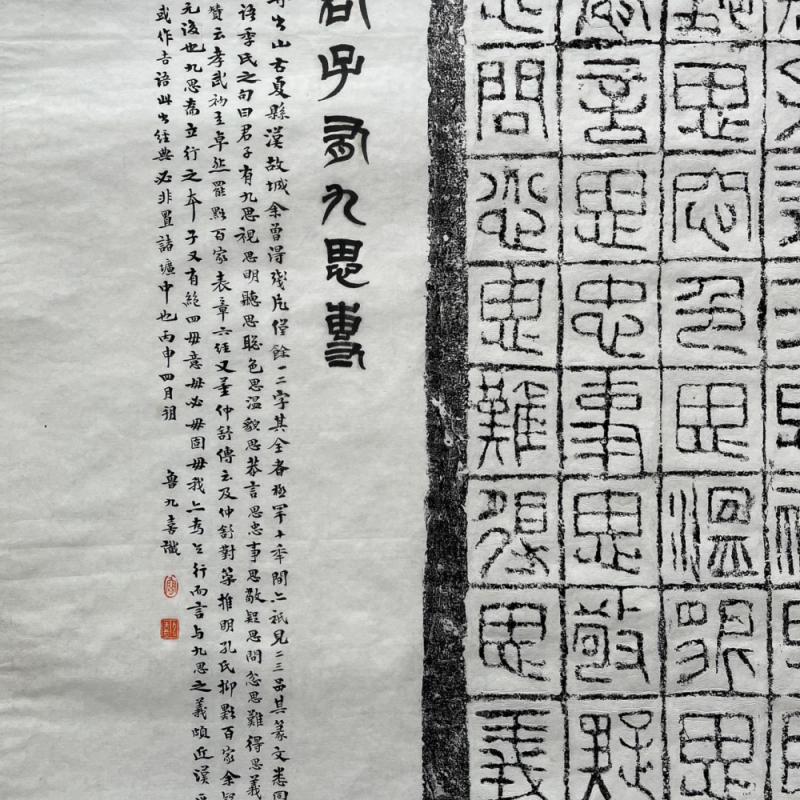 思聰色思溫貌思
言思忠事思敬疑
問忿思難得思義
君子有九思專
專出山右夏縣漢故城余曾得殘片僅餘一二字其全者極罕十年間亦祇見二三品其篆文悉同
語季氏之句曰君子有九思視思明聽思聰色思溫貌思恭言思忠事思敬疑思問忿思難得思義
贊云孝武初立卓然罷黜百家表章六經又董仲舒傳云及仲舒對策推明孔氏抑黜百家余疑
元後也九思為立行之本子又有絕四毋意毋必毋固毋我亦為立行而言与九思之義頗近漢
或作吉語此出經典必非置諸壙中也丙申四月
魯九喜識